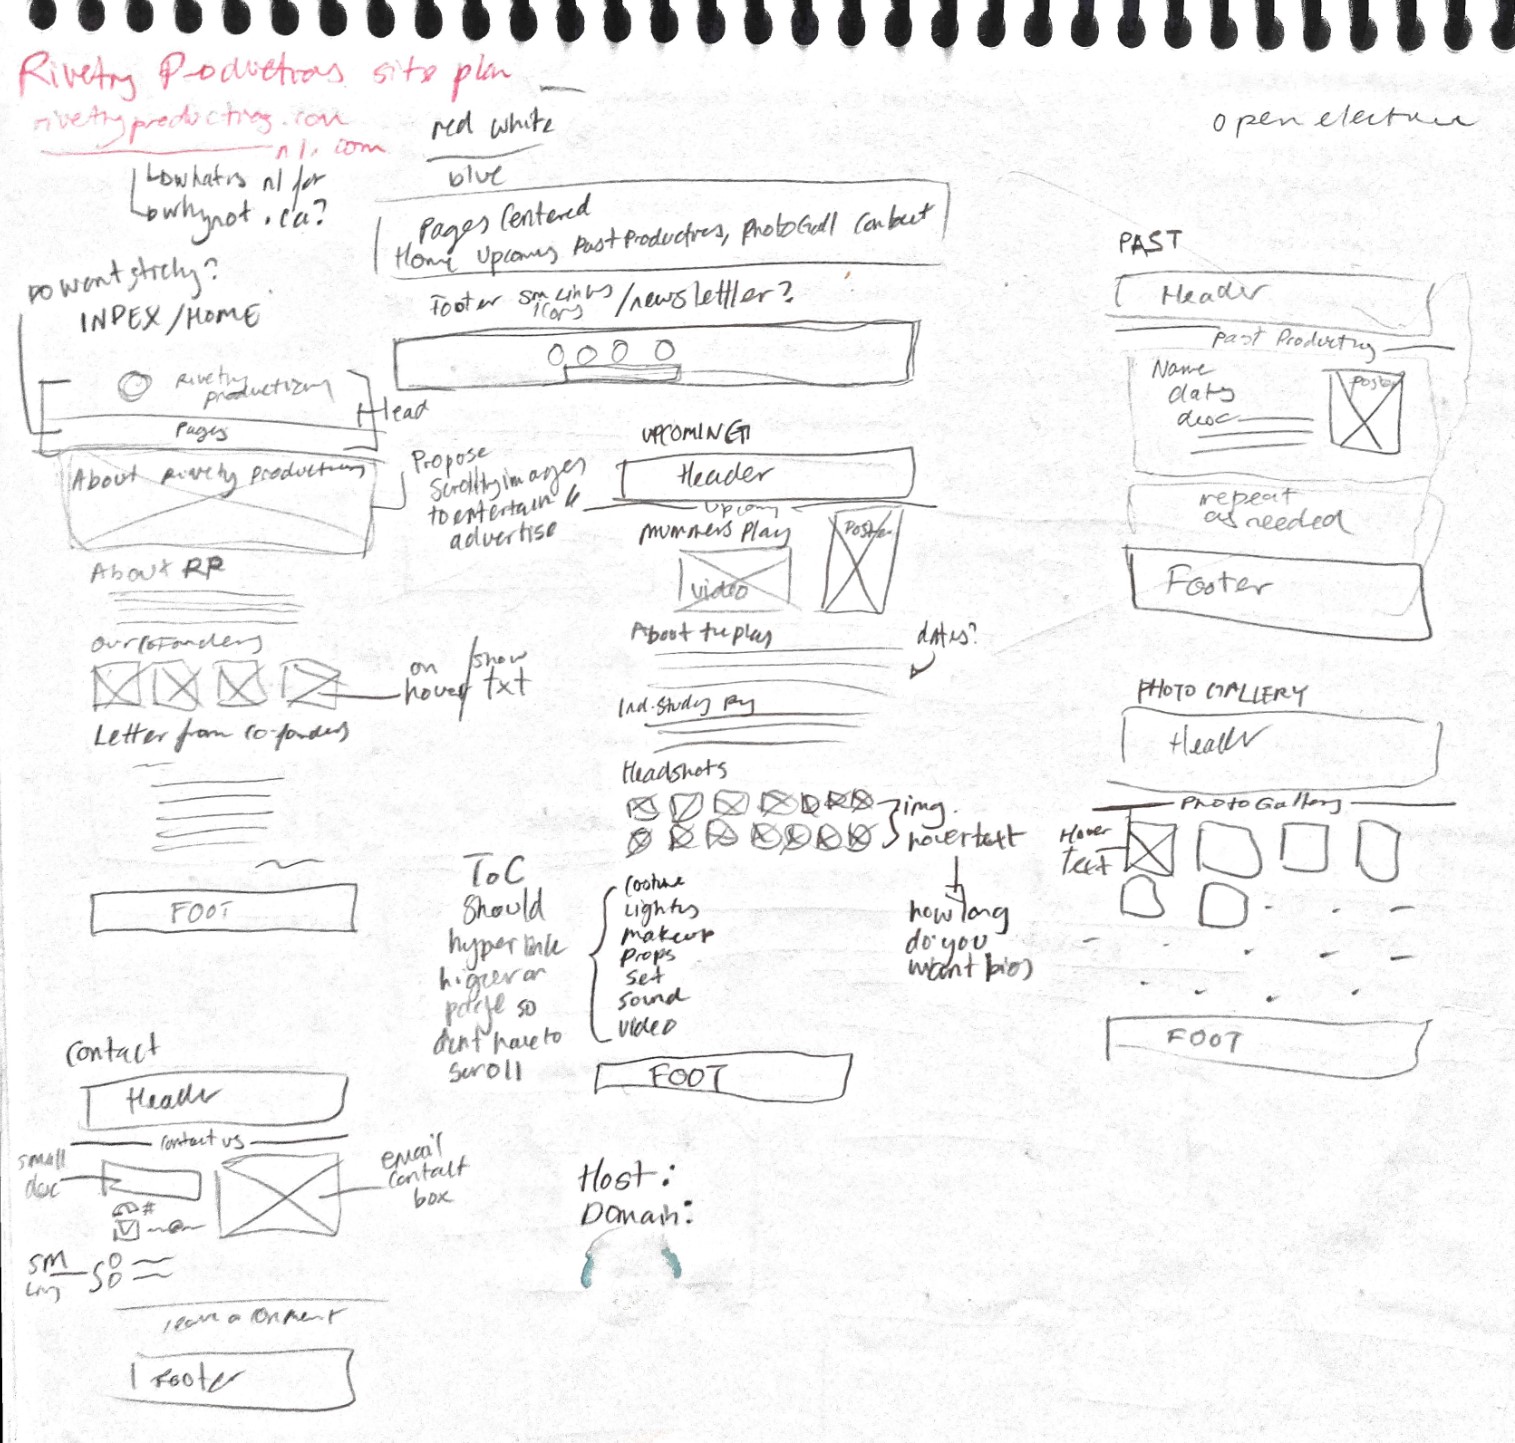 Rivetry Productions site plan
rivetryproductions.com
nl.com
what is nl for
why not .ca?
red white
blue
open electure
Pages Centered
Home Upcoming Past Productions, Photo Gall Contact
Footer sm links /newsletter?
icons
Do want sticky?
INDEX/HOME
Rivetry
productions
Head
Pages
About Rivetry Productions
Propose
scrolling images
to entertain &
advertise
About RP
Our Cofounders
on /show
hover txt
Letter from co-founders
FOOT
UPCOMING
Header
Upcoming
Mummers Play
Poster
video
About the play
dates?
Ind. Study by
Headshots
img.
hovertext
how long
do you
want bios
ToC
should
hyperlink
higher on
page so
dont have to
scroll
Costume
Lights
makeup
Props
set
sound
video
FOOT
PAST
Header
Past Productions
Name
dates
desc
Poster
repeat
as needed
Footer
PHOTO GALLERY
Header
Photo Gallery
Hover
Text
FOOT
Contact
Header
Contact us
small
desc
#
email
contact
box
SM
Links
leave a comment
Footer
Host:
Domain: